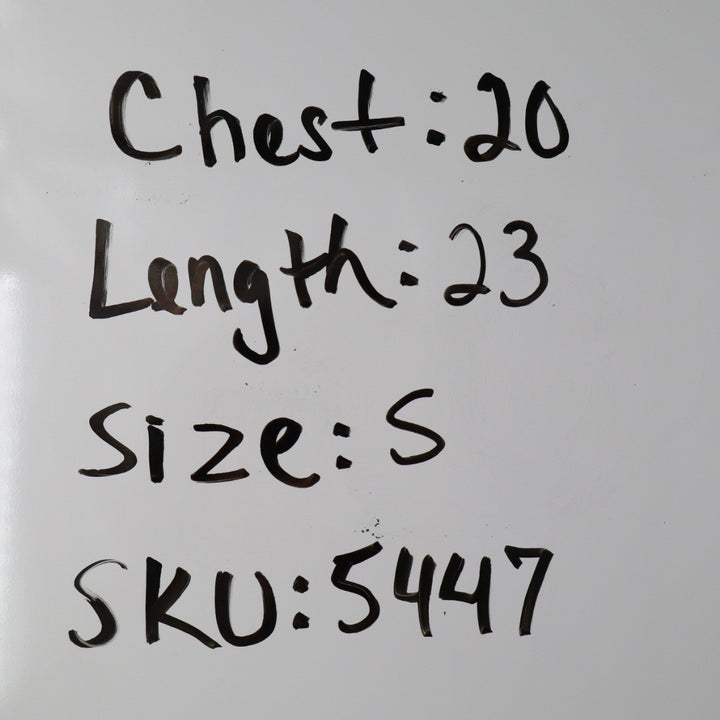 Chest: 20
Length: 23
Size: S
SKU: 5447